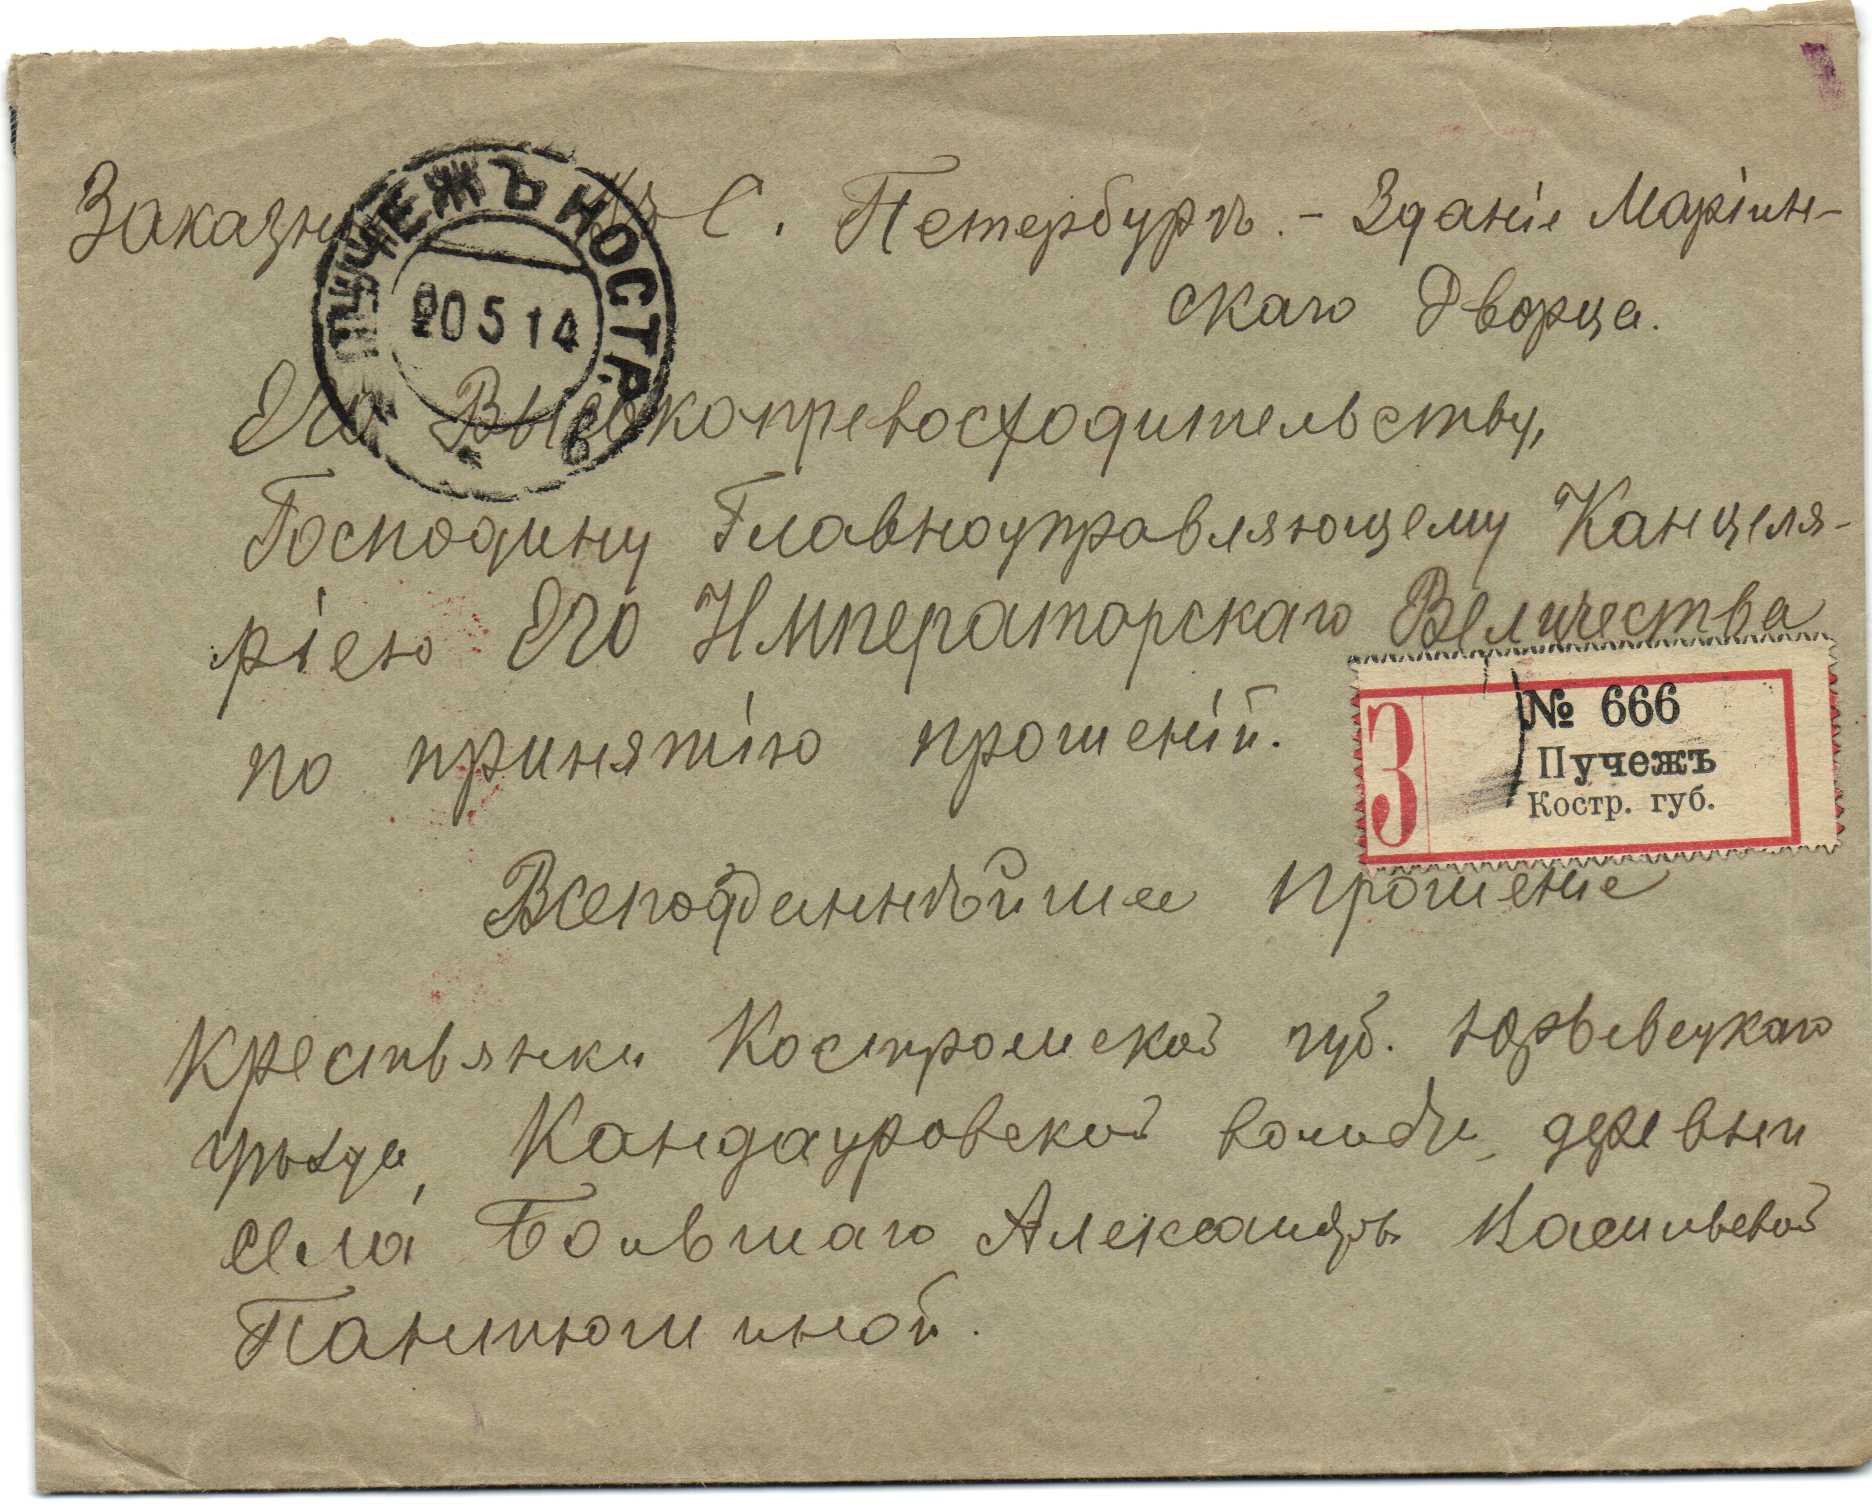 Заказн Въ С. Петербургъ. - Зданіе Маріин-
скаго Дворца.
ПУЧЕЖЪ КОСТР.
20 5 14
Его Высокопревосходительству,
Господину Главноуправляющему Канцеля-
ріею Его Императорскаго Величества
по принятію прошеній.
З
№ 666
Пучежъ
Костр. губ.
Всеподданнѣйшее прошеніе
Крестьянки Костромской губ. Юрьевецкаго
уѣзда, Кандауровской волости, деревни
села Большаго Александры Васильевой
Пантюшиной.